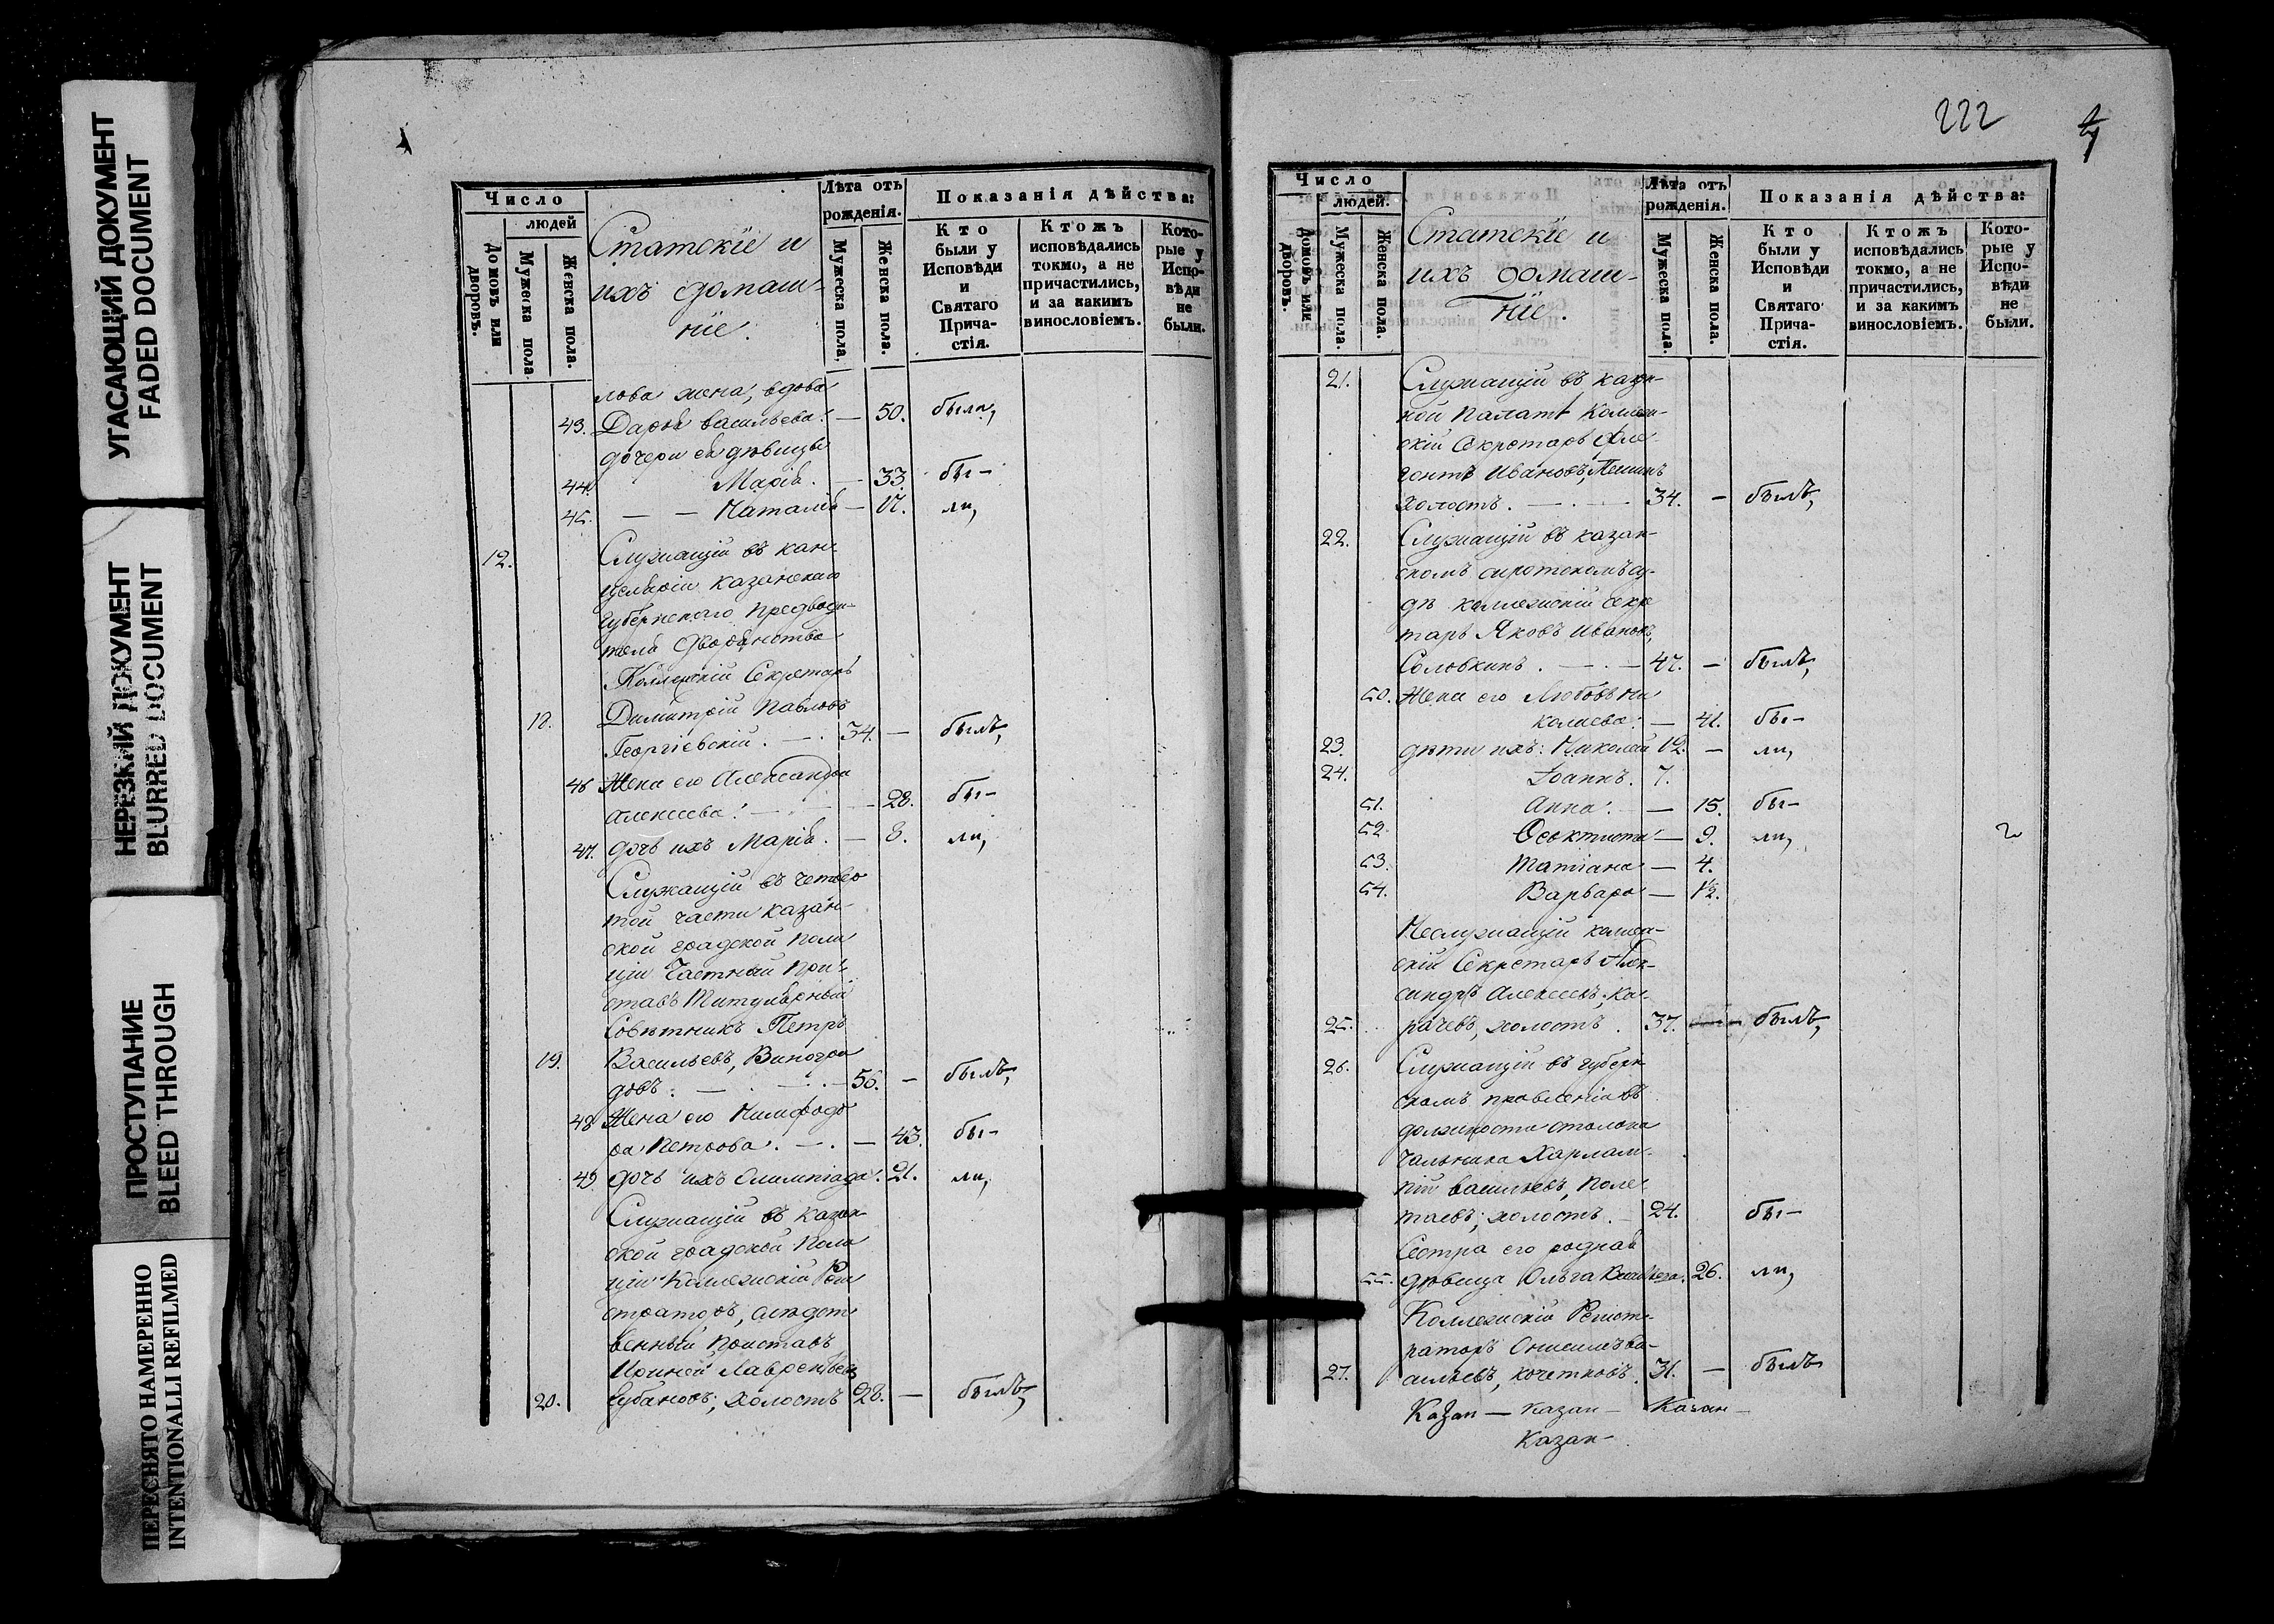 УГАСАЮЩИЙ ДОКУМЕНТ
FADED DOCUMENT
НЕРЕЗКИЙ ДОКУМЕНТ
BLURRED DOCUMENT
ПРОСТУПАНИЕ
BLEED THROUGH
ПЕРЕСНЯТО НАМЕРЕННО
INTENTIONALLI REFILMED
Число
людей
Домовъ или дворовъ.
Мужеска пола.
Женска пола.
Статскіе и
ихъ домаш-
ніе.
Лѣта отъ
рожденія.
Мужеска пола.
Женска пола.
Показанія дѣйства:
Кто
были у
Исповѣди
и
Святаго
Прича-
стія.
Ктожъ
исповѣдались
токмо, а не
причастились,
и за какимъ
винословіемъ.
Кото-
рые у
Испо-
вѣди
не
были.
лова жена, вдова
43. Дарья Васильева. — 50. была,
дочери ея дѣвицы
44. Марія. — 33. бы-
45. — — Наталія — 17. ли,
12. Служащій въ кан-
целяріи Казанскаго
Губернскаго Предводи-
теля Дворянства
Коллежскій Секретарь
18. Димитрій Павловъ
Георгіевскій. — 34. — былъ,
46 Жена его Александра
Алексѣева. — 28. бы-
47. дочь ихъ Марія. — 8. ли,
Служащій въ четвер
той части Казан-
ской градской Поли
ціи Частный При-
ставъ Титулярный
Совѣтникъ Петръ
19. Васильевъ, Виногра
довъ. — 56. — былъ,
48 Жена его Нимфодо
ра Петрова. — 43. бы-
49 дочь ихъ Олимпіада. 21. ли,
Служащій въ Казан-
ской градской Поли
ціи Коллежскій Реги
страторъ, слѣдст
венный Приставъ
Ириней Лаврентьев
20. Губановъ, холостъ 28. — былъ,
222
Число
людей.
Домовъ или дворовъ.
Мужеска пола.
Женска пола.
Статскіе и
ихъ домаш-
ніе.
Лѣта отъ
рожденія.
Мужеска пола.
Женска пола.
Показанія дѣйства:
Кто
были у
Исповѣди
и
Святаго
Прича-
стія.
Ктожъ
исповѣдались
токмо, а не
причастились,
и за какимъ
винословіемъ.
Кото-
рые у
Испо-
вѣди
не
были.
21. Служащій въ казен-
ной Палатѣ Коллеж-
скій Секретарь Фле-
гонтъ Ивановъ,
холостъ. — 34. — былъ,
22. Служащій въ Казан-
скомъ сиротскомъ су-
дѣ коллежскій секре
тарь Яковъ Ивановъ,
Соловкинъ. — 47. — былъ,
50. Жена его Любовь Ни
колаева. — 41. бы-
23. дѣти ихъ: Николай 12. — ли,
24. Іоаннъ. 7.
51. Анна. — 15. бы-
52. Ѳеоктиста — 9. ли,
53. Татіана — 4.
54. Варвара — 1½.
Неслужащій коллеж-
скій Секретарь Алек-
сандръ Алексѣевъ, Ка-
25. рачевъ, холостъ. 37. — былъ,
26. Служащій въ губерн
скомъ правленіи въ
должности столона
чальника Харлам-
пій Васильевъ, Поле-
таевъ, холостъ. — 24. бы-
Сестра его родная
55. дѣвица Ольга Васильева. 26. ли,
Коллежскій Регист-
раторъ Онисимъ Ва-
27. сильевъ, Кочетковъ. 31. — былъ
Казан — Казан — Казан —
Казан —